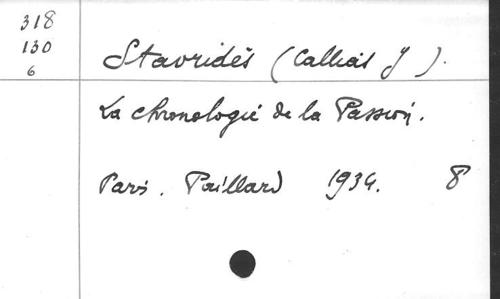 318
130
6
Stavridès (Callias J).
La chronologie de la Passion.
Paris. Paillard 1934. 8